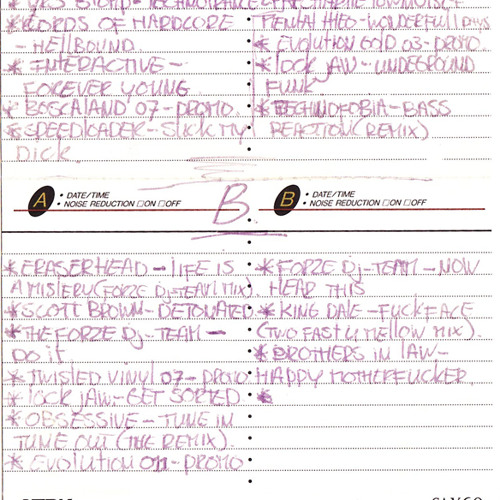 LORDS OF HARDCORE
- HELLBOUND.
* INTERACTIVE -
FOREVER YOUNG.
* BOSCALAND 07 - PROMO.
* SPEEDLOADER - SUCK MY
DICK.
MENTAL THEO - WONDERFULL DAYS
* EVOLUTION GOLD 03 - PROMO.
* LOCK JAW - UNDEGROUND
FUNK
* TECHNOFOBIA - BASS
REACTION (REMIX)
A • DATE/TIME
• NOISE REDUCTION □ON □OFF
B
B • DATE/TIME
• NOISE REDUCTION □ON □OFF
* ERASERHEAD - LIFE IS
A MISTERY (FORZE DJ-TEAM MIX).
* SCOTT BROWN - DETONATED
* THE FORZE DJ - TEAM -
DO IT.
* TWISTED VINYL 07 - PROMO
* LOCK JAW - GET SORTED
* OBSESSIVE - TUNE IN
TUNE OUT (THE REMIX).
* EVOLUTION 011 - PROMO
* FORZE DJ - TEAM - NOW
HEAR THIS
* KING DALE - FUCKFACE
(TWO FAST 4 MELLOW MIX).
* BROTHERS IN LAW -
HAPPY MOTHERFUCKER.
*